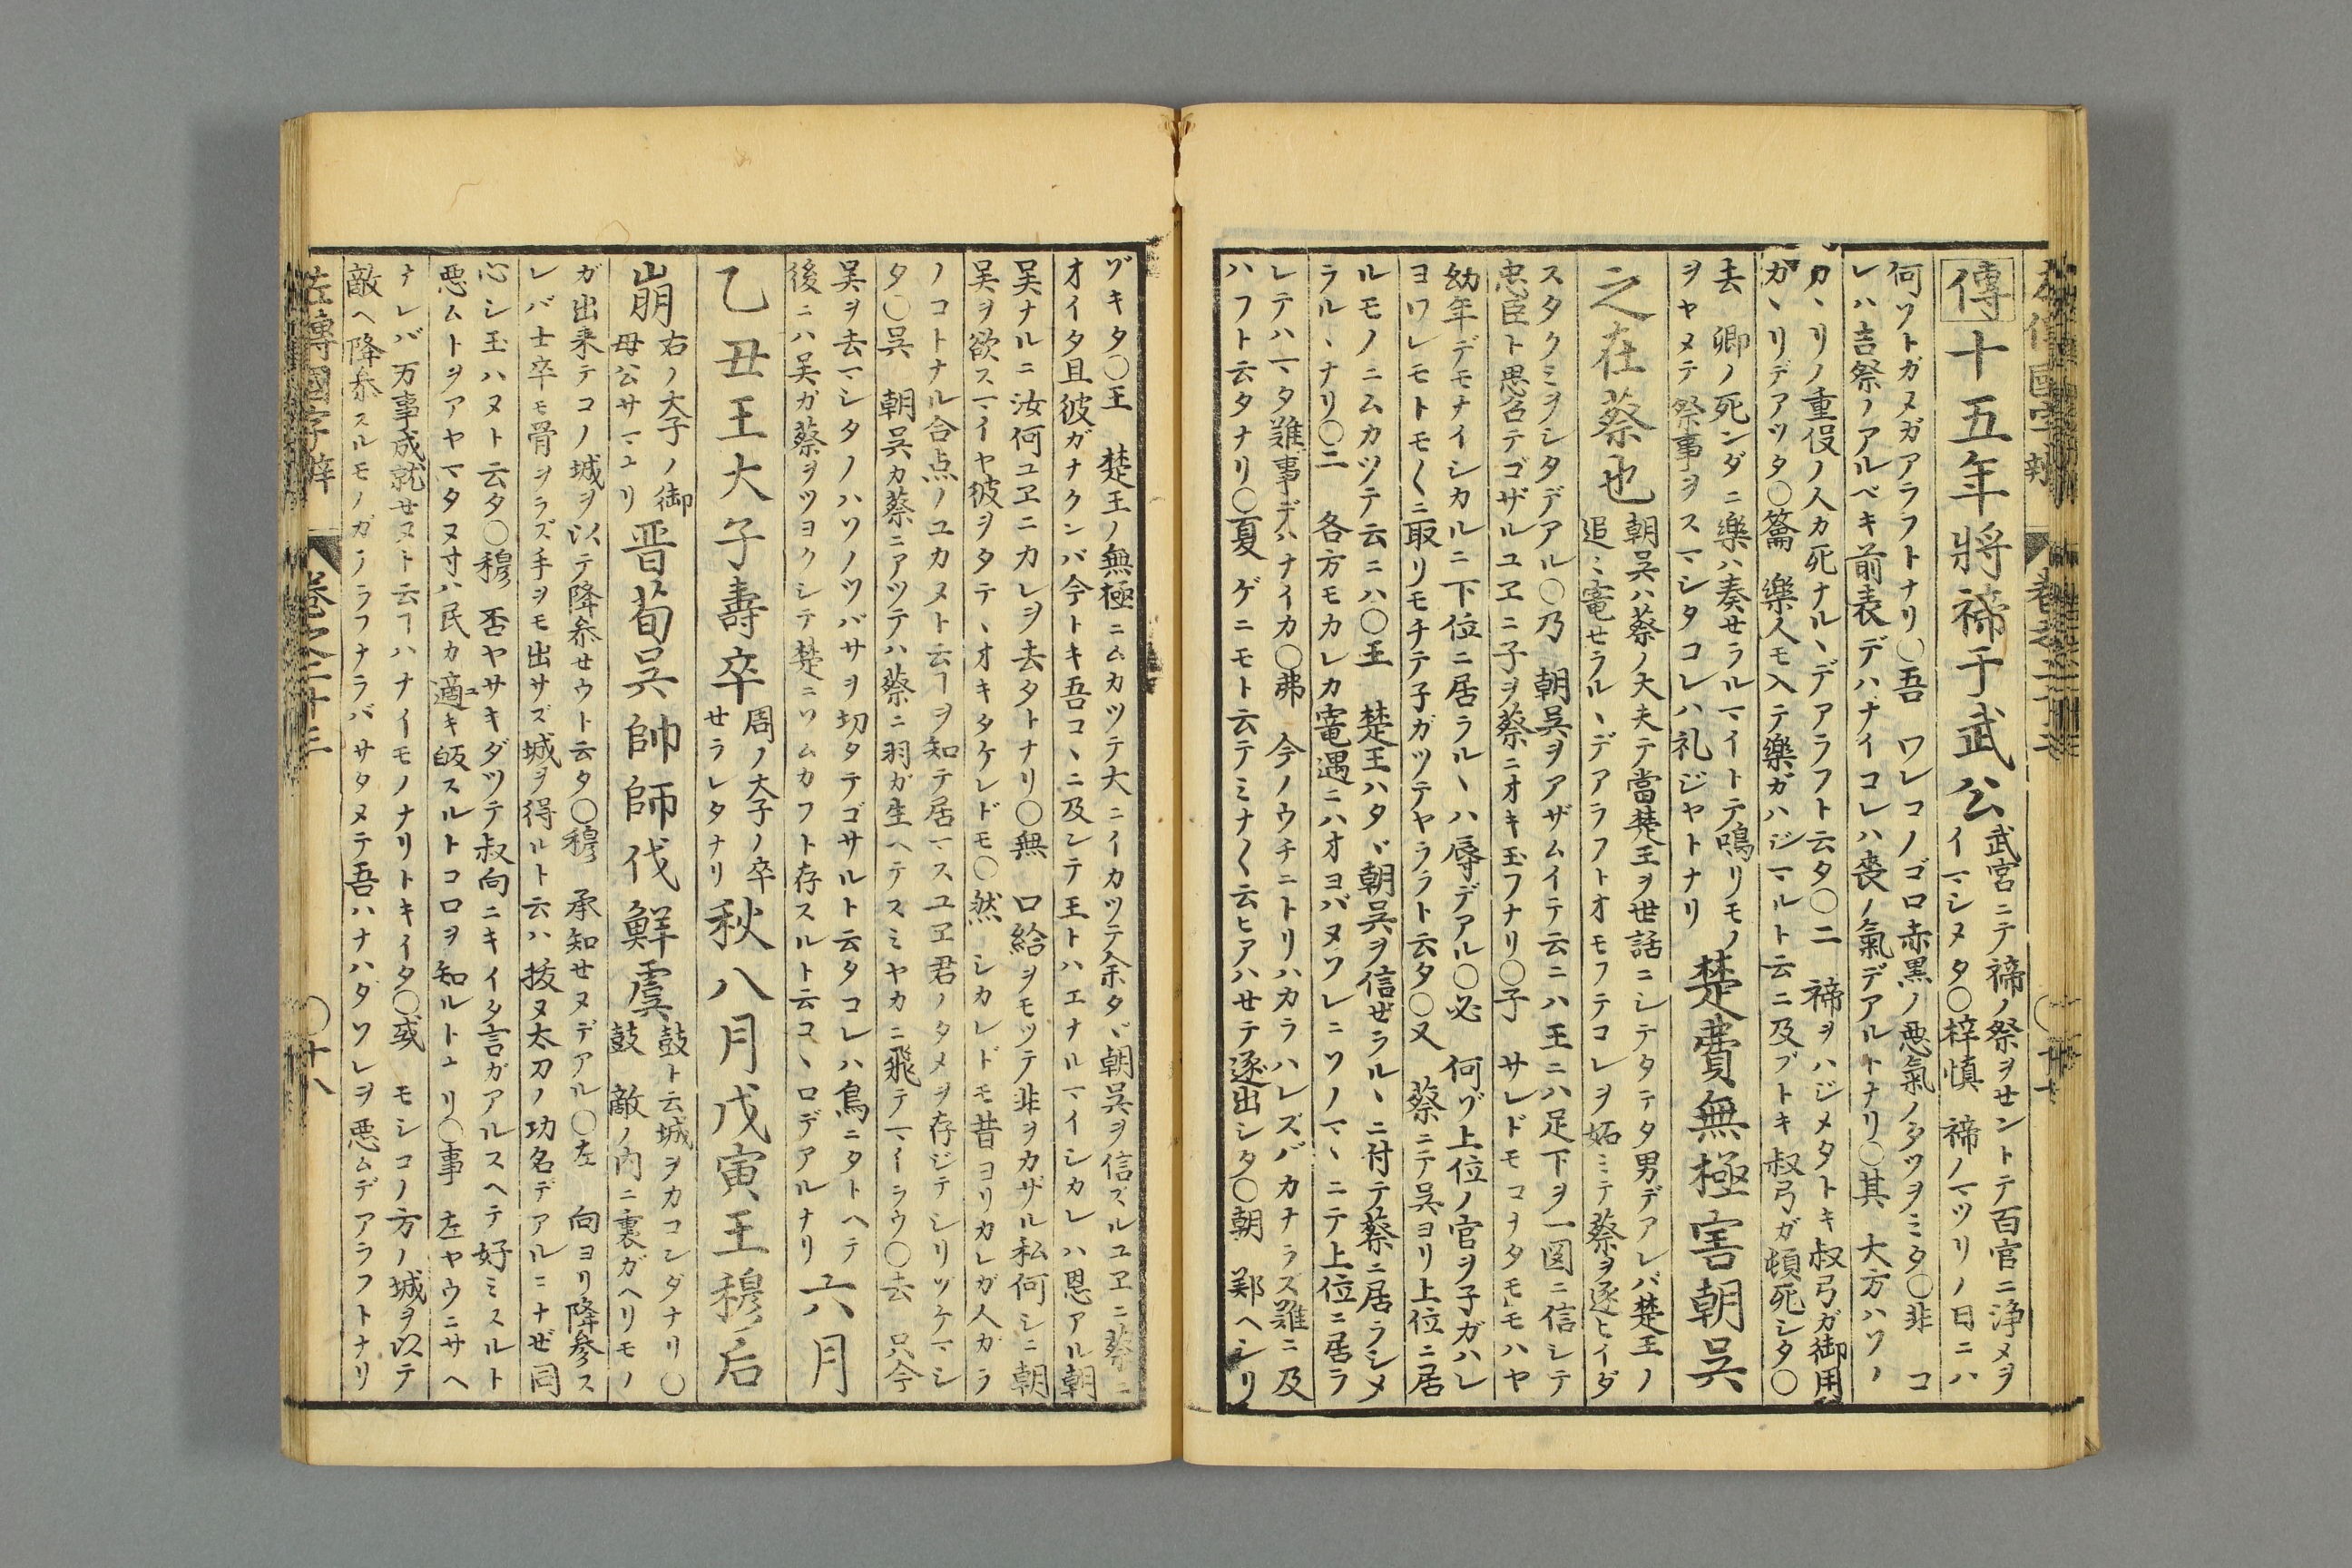 傳十五年將禘于武公
武宮ニテ禘ノ祭ヲセントテ百官ニ浄メヲ
イマシヌタ〇梓慎 禘ノマツリノ日ニハ
何ゾトガメガアラフトナリ〇吾 ワレコノゴロ赤黒ノ悪氣ノタツヲミタ〇非 コ
レハ吉祭ノアルベキ前表デハナイコレハ喪ノ氣デアルトナリ〇其 大方ハソノ
カヽリノ重役ノ人カ死ナルヽデアラフト云タ〇二 禘ヲハジメタトキ叔弓ガ御用
ガヽリデアツタ〇籥 樂人モ入テ樂ガハジマルト云ニ及ブトキ叔弓ガ頓死シタ〇
去 卿ノ死ンダニ樂ハ奏せラルマイトテ鳴リモノ
ヲヤメテ祭事ヲスマシタコレハ礼ジヤトナリ
楚費無極害朝呉
之在蔡也
朝呉ハ蔡ノ大夫テ當楚王ヲ世話ニシテタテタ男デアレバ楚王ノ
追〻寵せラルヽデアラフトオモフテコレヲ妬ミテ蔡ヲ逐ヒイダ
スタクミヲシタデアル〇乃 朝呉ヲアザムイテ云ニハ王ニハ足下ヲ一図ニ信シテ
忠臣ト思召テゴザルユヱニ子ヲ蔡ニオキ玉フナリ〇子 サレドモコナタモモハヤ
幼年デモナイシカルニ下位ニ居ラルヽハ辱デアル〇必 何ゾ上位ノ官ヲ子ガハレ
ヨワレモトモ〱ニ取リモチテ子ガツテヤラフト云タ〇又 蔡ニテ呉ヨリ上位ニ居
ルモノニムカツテ云ニハ〇王 楚王ハタヾ朝呉ヲ信ぜラルヽニ付テ蔡ニ居ラシメ
ラルヽナリ〇二 各方モカレカ寵遇ニハオヨバヌソレニソノマヽニテ上位ニ居ラ
レテハマタ難事デハナイカ〇弗 今ノウチニトリハカラハレズバカナラズ難ニ及
ハフト云タナリ〇夏 ゲニモト云テミナ〱云ヒアハせテ逐出シタ〇朝 鄭ヘシリ
ゾキタ〇王 楚王ノ無極ニムカツテ大ニイカツテ余タヾ朝呉ヲ信ズルユヱニ蔡ニ
オイタ且彼ガナクンバ今トキ吾コヽニ及シテ王トハエナルマイシカレハ恩アル朝
呉ナルニ汝何ユヱニカレヲ去タトナリ〇無 口給ヲモツテ非ヲカザル私何シニ朝
呉ヲ欲スマイヤ彼ヲタテヽオキタケレドモ〇然 シカレドモ昔ヨリカレガ人ガラ
ノコトナル合点ノユカヌト云ヿヲ知テ居マスユヱ君ノタメヲ存ジテシリゾケマシ
タ〇呉 朝呉カ蔡ニアツテハ蔡ニ羽ガ生ヘテスミヤカニ飛テマイラウ〇去 只今
呉ヲ去マシタノハソノツバサヲ切タテゴサルト云タコレハ鳥ニタトヘテ
後ニハ呉ガ蔡ヲツヨクシテ楚ニソムカフト存スルト云コヽロデアルナリ
六月
乙丑王大子壽卒
周ノ大子ノ卒
せラレタナリ
秋八月戊寅王穆后
崩
右ノ大子ノ御
母公サマユリ
晋荀呉帥師伐鮮虞
鼓ト云城ヲカコンダナリ〇
鼓 敵ノ内ニ裏ガヘリモノ
ガ出来テコノ城ヲ以テ降参せウト云タ〇穆 承知せヌデアル〇左 向ヨリ降参ス
レバ士卒モ骨ヲラズ手ヲモ出サズ城ヲ得ルト云ハ抜ヌ太刀ノ功名デアルニナぜ同
心シ玉ハヌト云タ〇穆 否ヤサキダツテ叔向ニキイタ言ガアルスヘテ好ミスルト
悪ムトヲアヤマタヌ寸ハ民カ適キ皈スルトコロヲ知ルトユリ〇事 左ヤウニサヘ
ナレバ万事成就せヌト云ヿハナイモノナリトキイタ〇或 モシコノ方ノ城ヲ以テ
敵ヘ降参スルモノガアラフナラバサタメテ吾ハナハタソレヲ悪ムデアラフトナリ
左傳國字辯 巻之二十三 〇十八